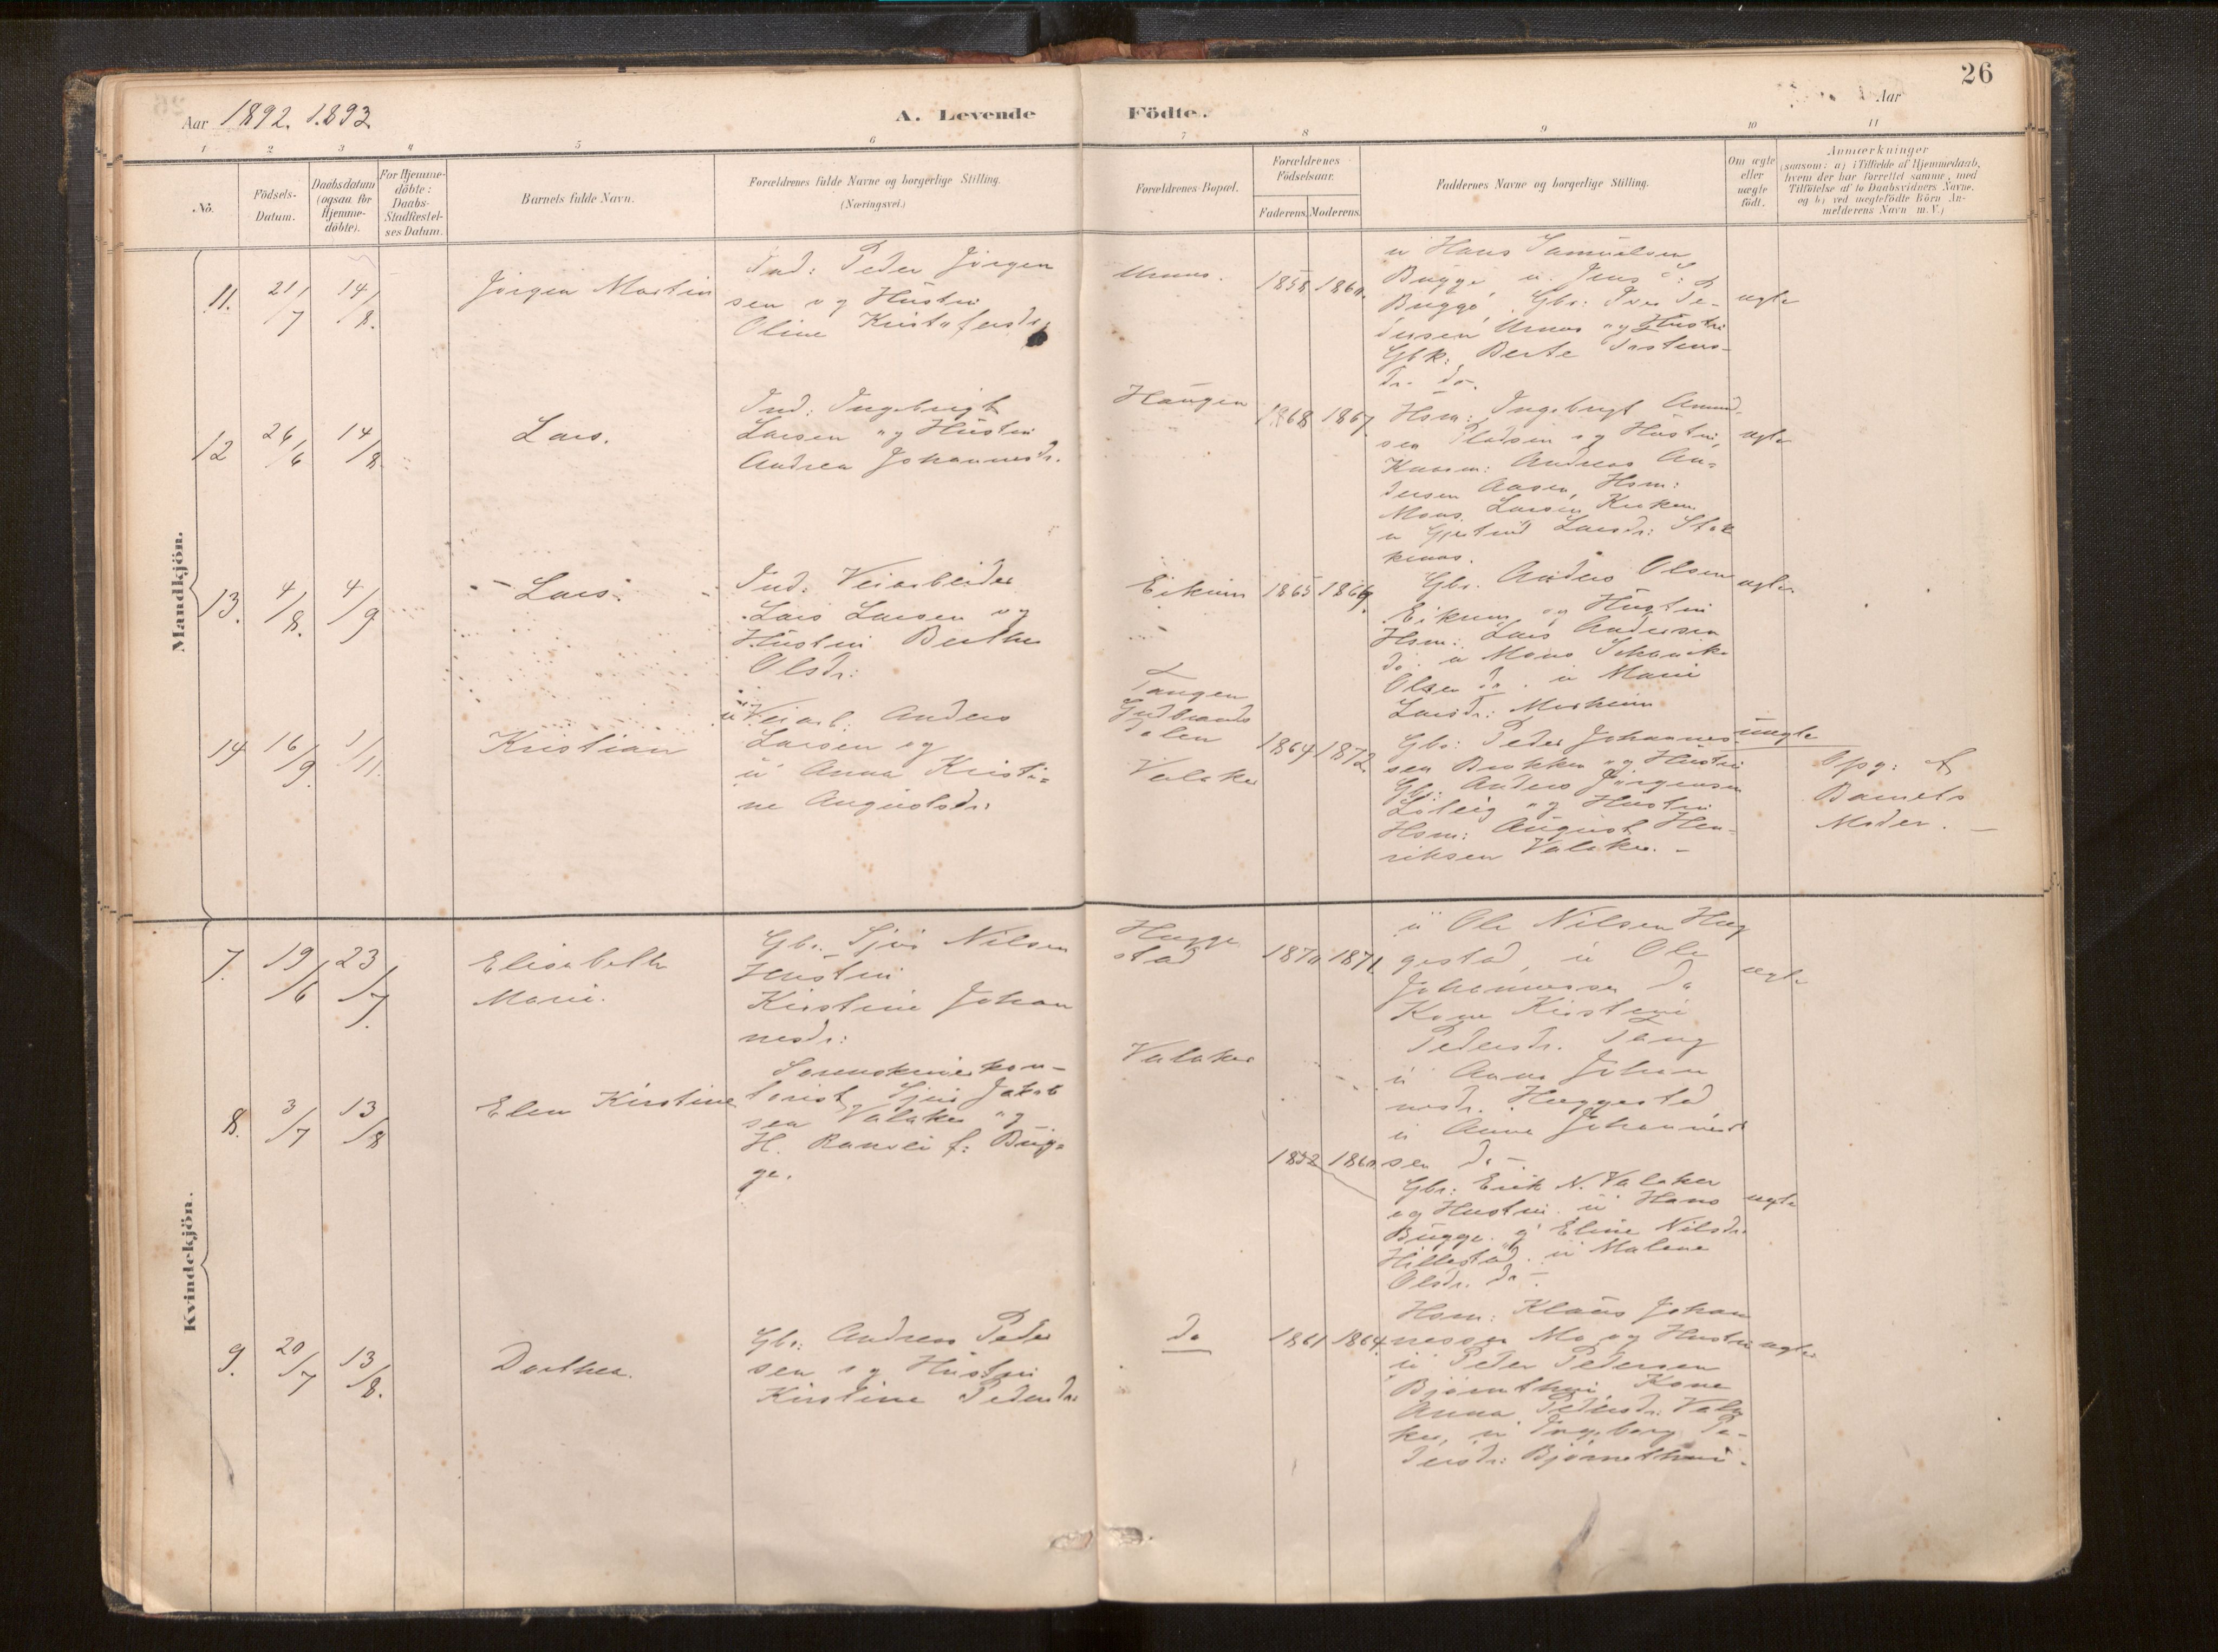 26
Aar 1892. 1893.
A. Levende Födte.
Aar
1 2 3 4 5 6 7 8 9 10 11
No.
Födsels-
Datum.
Daabsdatum
(ogsaa for
Hjemme-
döbte).
For Hjemme-
döbte:
Daabs-
Stadfæstel-
ses Datum.
Barnets fulde Navn.
Forældrenes fulde Navne og borgerlige Stilling.
(Næringsvei.)
Forældrenes Bopæl.
Forældrenes
Födselsaar.
Faderens. Moderens.
Faddernes Navne og borgerlige Stilling.
Om ægte
eller
uægte
födt.
Anmærkninger
(saasom: a) i Tilfælde af Hjemmedaab,
hvem der har forrettet samme, med
Tilföielse af to Daabsvidners Navne.
og b) ved uægtefödte Börn An-
melderens Navn m.V.)
Mandkjön.
11. 21/7 14/8.
Jörgen Martin
Ind: Peder Jörgen
sen og Hustru
Oline Kristofersdr.
Urnes.
1858 1860.
u Hans Samuelsen
Bugge u. Jens
Bugge, Gbr: Iver Pe-
dersen Urnes og Hustru
Gbk: Berte Tostens-
dr. do.
ægte
12 26/6 14/8
Lars.
Ind: Ingebrigt
Larsen og Hustru
Andrea Johannesdr.
Haugen
1868 1867.
Hsm: Ingebrigt Amund-
sen Pladsen og Hustru,
Andreas An-
dersen Aasen, Hsm:
Mons Larsen Kroken
u Gjertrud Larsdr: Stok
kenes.
ægte
13. 4/8. 4/9
Lars.
Ind: Veiarbeider
Lars Larsen og
Hustru Berthe
Olsdr:
Eikum
1865 1869.
Gbr. Anders Olsen
Eikum og Hustru
Hsm: Lars Andersen
do. u Mons
Olsen do. u Marie
Larsdr: Morheim
ægte
14 16/9. 1/11.
Kristian
u Veiarb: Anders
Larsen og
u Anna Kristi=
ne Augustsdr:
Tangen
Gudbrands
dalen
Valaker
1864 1872.
Gbr: Peder Johannes-
sen Brokken og Hustru
Gbr: Anders Jörgensen
og Hustru
Hsm: August Hen-
riksen Valaker. -
uægte
Opg: af
Barnets
Moder. -
Kvindekjön.
7. 19/6 23/7.
Elisabeth
Marie.
Gbr. Sjur Nilsen
Hustru
Kirstine Johan
nesdr:
Hegge
stad
1870 1871.
u Ole Nilsen Heg
gestad, u Ole
Johannessen do
Kone Kirstine
Pedersdr. Tang
u Anna Johan
nesdr. Heggestad
u Anne Johannes
sen do -.
ægte
8. 3/7 13/8
Elen Kirstine
Sorenskriverkon-
torist Sjur Jakob
sen Valaker og
H. Ranvei f: Bug=
ge.
Valaker
1852 1860.
Gbr: Erik N. Valaker
og Hustru. u Hans
Bugge. og Eline Nilsdr.
Hillestad. u Malene
Olsdr. do -.
ægte
9. 20/7 13/8.
Dorthea.
Gbr: Andreas Peder
sen og Hustru
Kirstine Pedersdr:
do
1861 1864.
Hsm: Klaus Johan
nessen Mo og Hustru
u Peder Pedersen
Björnethun, Kone
Anna Pedersdr: Vala
ker, u Ingeborg Pe-
dersdr: Björnethun.
ægte